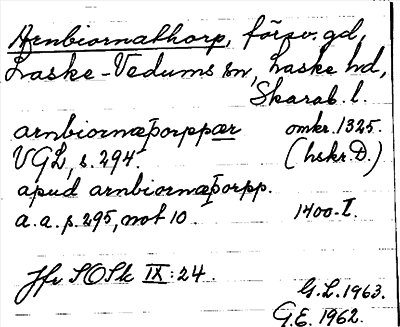 Arnbiornathorp, försv. gd,
Laske-Vedums sn, Laske hd,
Skarab. l.
arnbiornæþorppær omkr. 1325.
VGL, s. 294. (hskr. D.)
apud arnbiornæþorpp.
a.a. s. 295, not 10. 1400. I.
Jfr SOSk IX: 24.
G.L. 1963.
G.E. 1962.